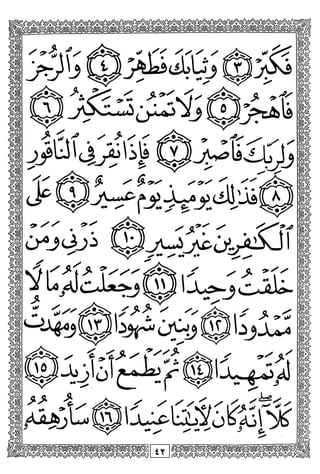 فَكَبِّرْ ٣ وَثِيَابَكَ فَطَهِّرْ ٤ وَٱلرُّجْزَ
فَٱهْجُرْ ٥ وَلَا تَمْنُن تَسْتَكْثِرُ ٦
وَلِرَبِّكَ فَٱصْبِرْ ٧ فَإِذَا نُقِرَ فِى ٱلنَّاقُورِ
٨ فَذَٰلِكَ يَوْمَئِذٍ يَوْمٌ عَسِيرٌ ٩ عَلَى
ٱلْكَٰفِرِينَ غَيْرُ يَسِيرٍ ١٠ ذَرْنِى وَمَنْ
خَلَقْتُ وَحِيدًا ١١ وَجَعَلْتُ لَهُۥ مَالًا
مَّمْدُودًا ١٢ وَبَنِينَ شُهُودًا ١٣ وَمَهَّدتُّ
لَهُۥ تَمْهِيدًا ١٤ ثُمَّ يَطْمَعُ أَنْ أَزِيدَ ١٥
كَلَّآ ۖ إِنَّهُۥ كَانَ لِءَايَٰتِنَا عَنِيدًا ١٦ سَأُرْهِقُهُۥ
٤٢